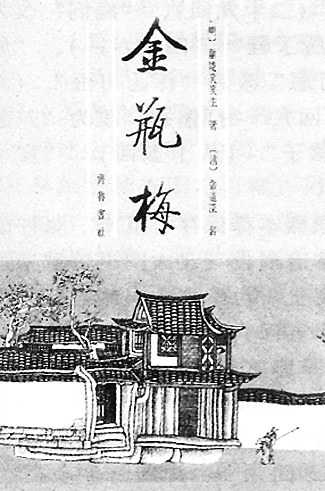 〔明〕蘭陵笑笑生 著 〔清〕張道深 評
金瓶梅
齊魯書社